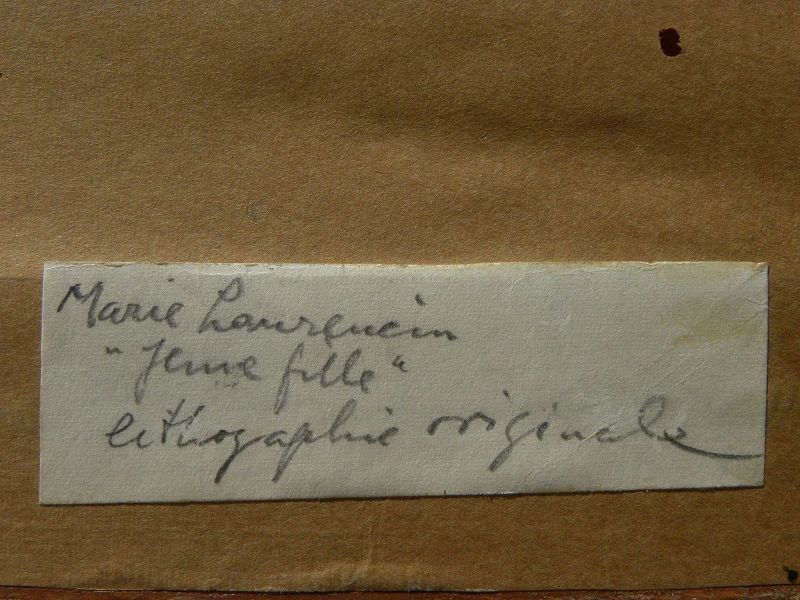 Marie Laurencin
"Jeune fille"
lithographie originale